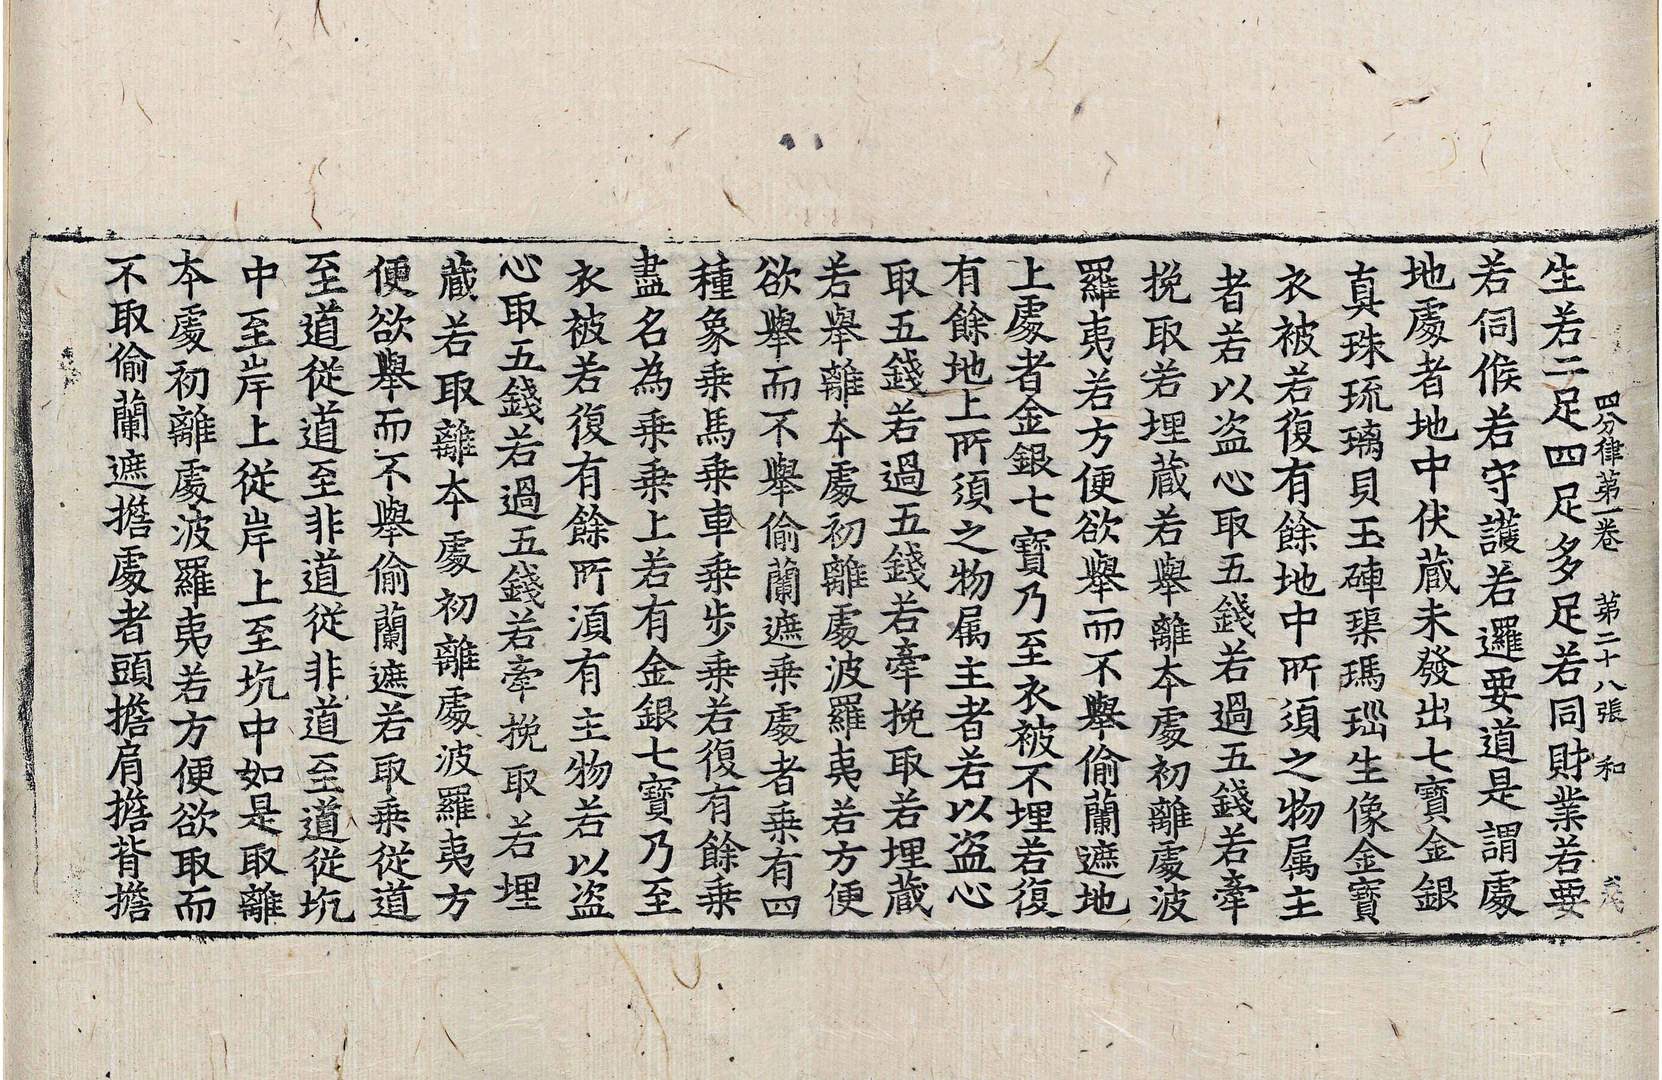 四分律苐一卷 苐二十八張 和
生若二足四足多足若同財業若要
若伺候若守護若邏要道是謂處
地處者地中伏蔵未發出七寶金銀
真珠琉璃貝玉硨璖瑪瑙生像金寶
衣被若復有餘地中所須之物属主
者若以盗心取五錢若過五錢若牽
挽取若埋蔵若舉離夲處初離處波
羅夷若方便欲舉而不舉偷蘭遮地
上處者金銀七寶乃至衣被不埋若復
有餘地上所須之物属主者若以盗心
取五錢若過五錢若牽挽取若埋蔵
若舉離夲處初離處波羅夷若方便
欲舉而不舉偷蘭遮乗處者乗有四
種象乗馬乗車乗歩乗若復有餘乗
盡名為乗乗上若有金銀七寶乃至
衣被若復有餘所湏有主物若以盗
心取五錢若過五錢若牽挽取若埋
蔵若取離夲處初離處波羅夷方
便欲舉而不舉偷蘭遮若取乗從道
至道從道至非道從非道至道從坑
中至岸上從岸上至坑中如是取離
夲處初離處波羅夷若方便欲取而
不取偷蘭遮擔處者頭擔肩擔背擔